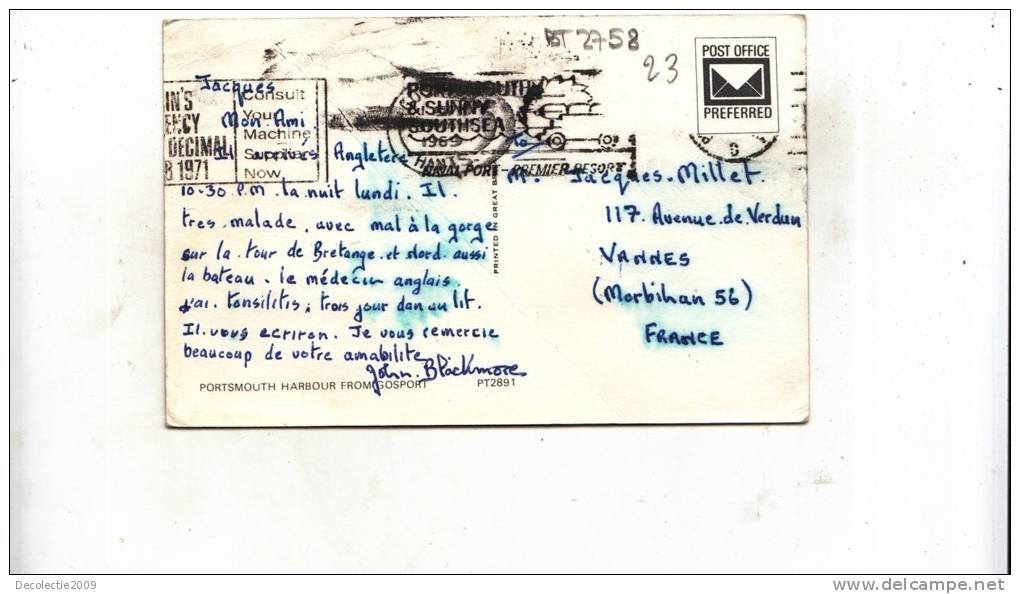 BT 2758
23
POST OFFICE
PREFERRED
IN'S
ENCY
DECIMAL
1971
Consult
Your
Machine
Supplier
Now
PORTSMOUTH
& SUNNY
SOUTHSEA
1969
HANTS
NAVAL PORT - PREMIER RESORT
Jacques
Mon Ami
Angletere
10-30 P.M. la nuit lundi. Il
tres malade, avec mal à la gorge
sur la tour de Bretange et nord aussi
la bateau. le médecin anglais.
j'ai tonsilitis; trois jour dan au lit.
Il vous ecriron. Je vous remercie
beaucoup de votre amabilite
John. Blackmore
PORTSMOUTH HARBOUR FROM GOSPORT PT2891
PRINTED IN GREAT
To
M. Jacques Millet.
117. Avenue de Verdun
VANNES
(Morbihan 56)
FRANCE
Decolectie2009
www.delcampe.net